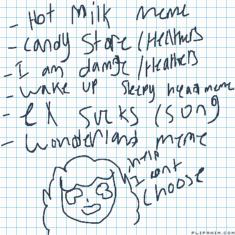 - Hot Milk meme
- Candy Store /Heathers
- I am damge /Heathers
- wake up sleepy head meme
- EX SUCKS (song
- wonderland meme
Help
I cant
choose
FLIPANIM.COM